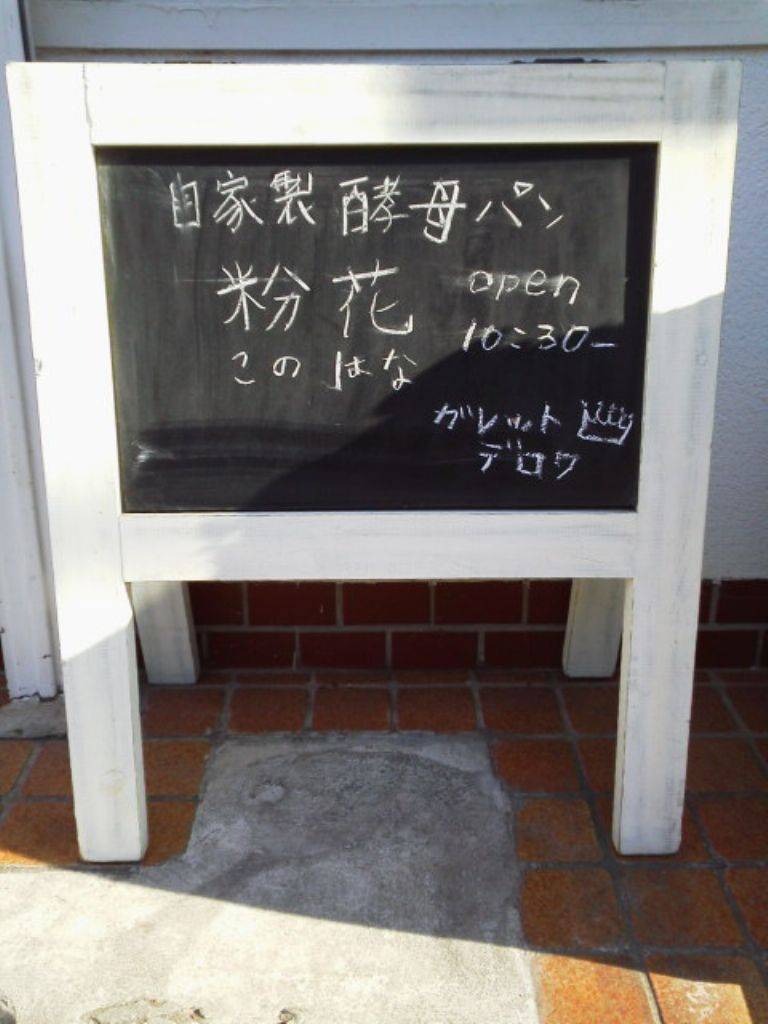 自家製 酵母パン
粉花
このはな
open
10:30-
ガレット
デロワ